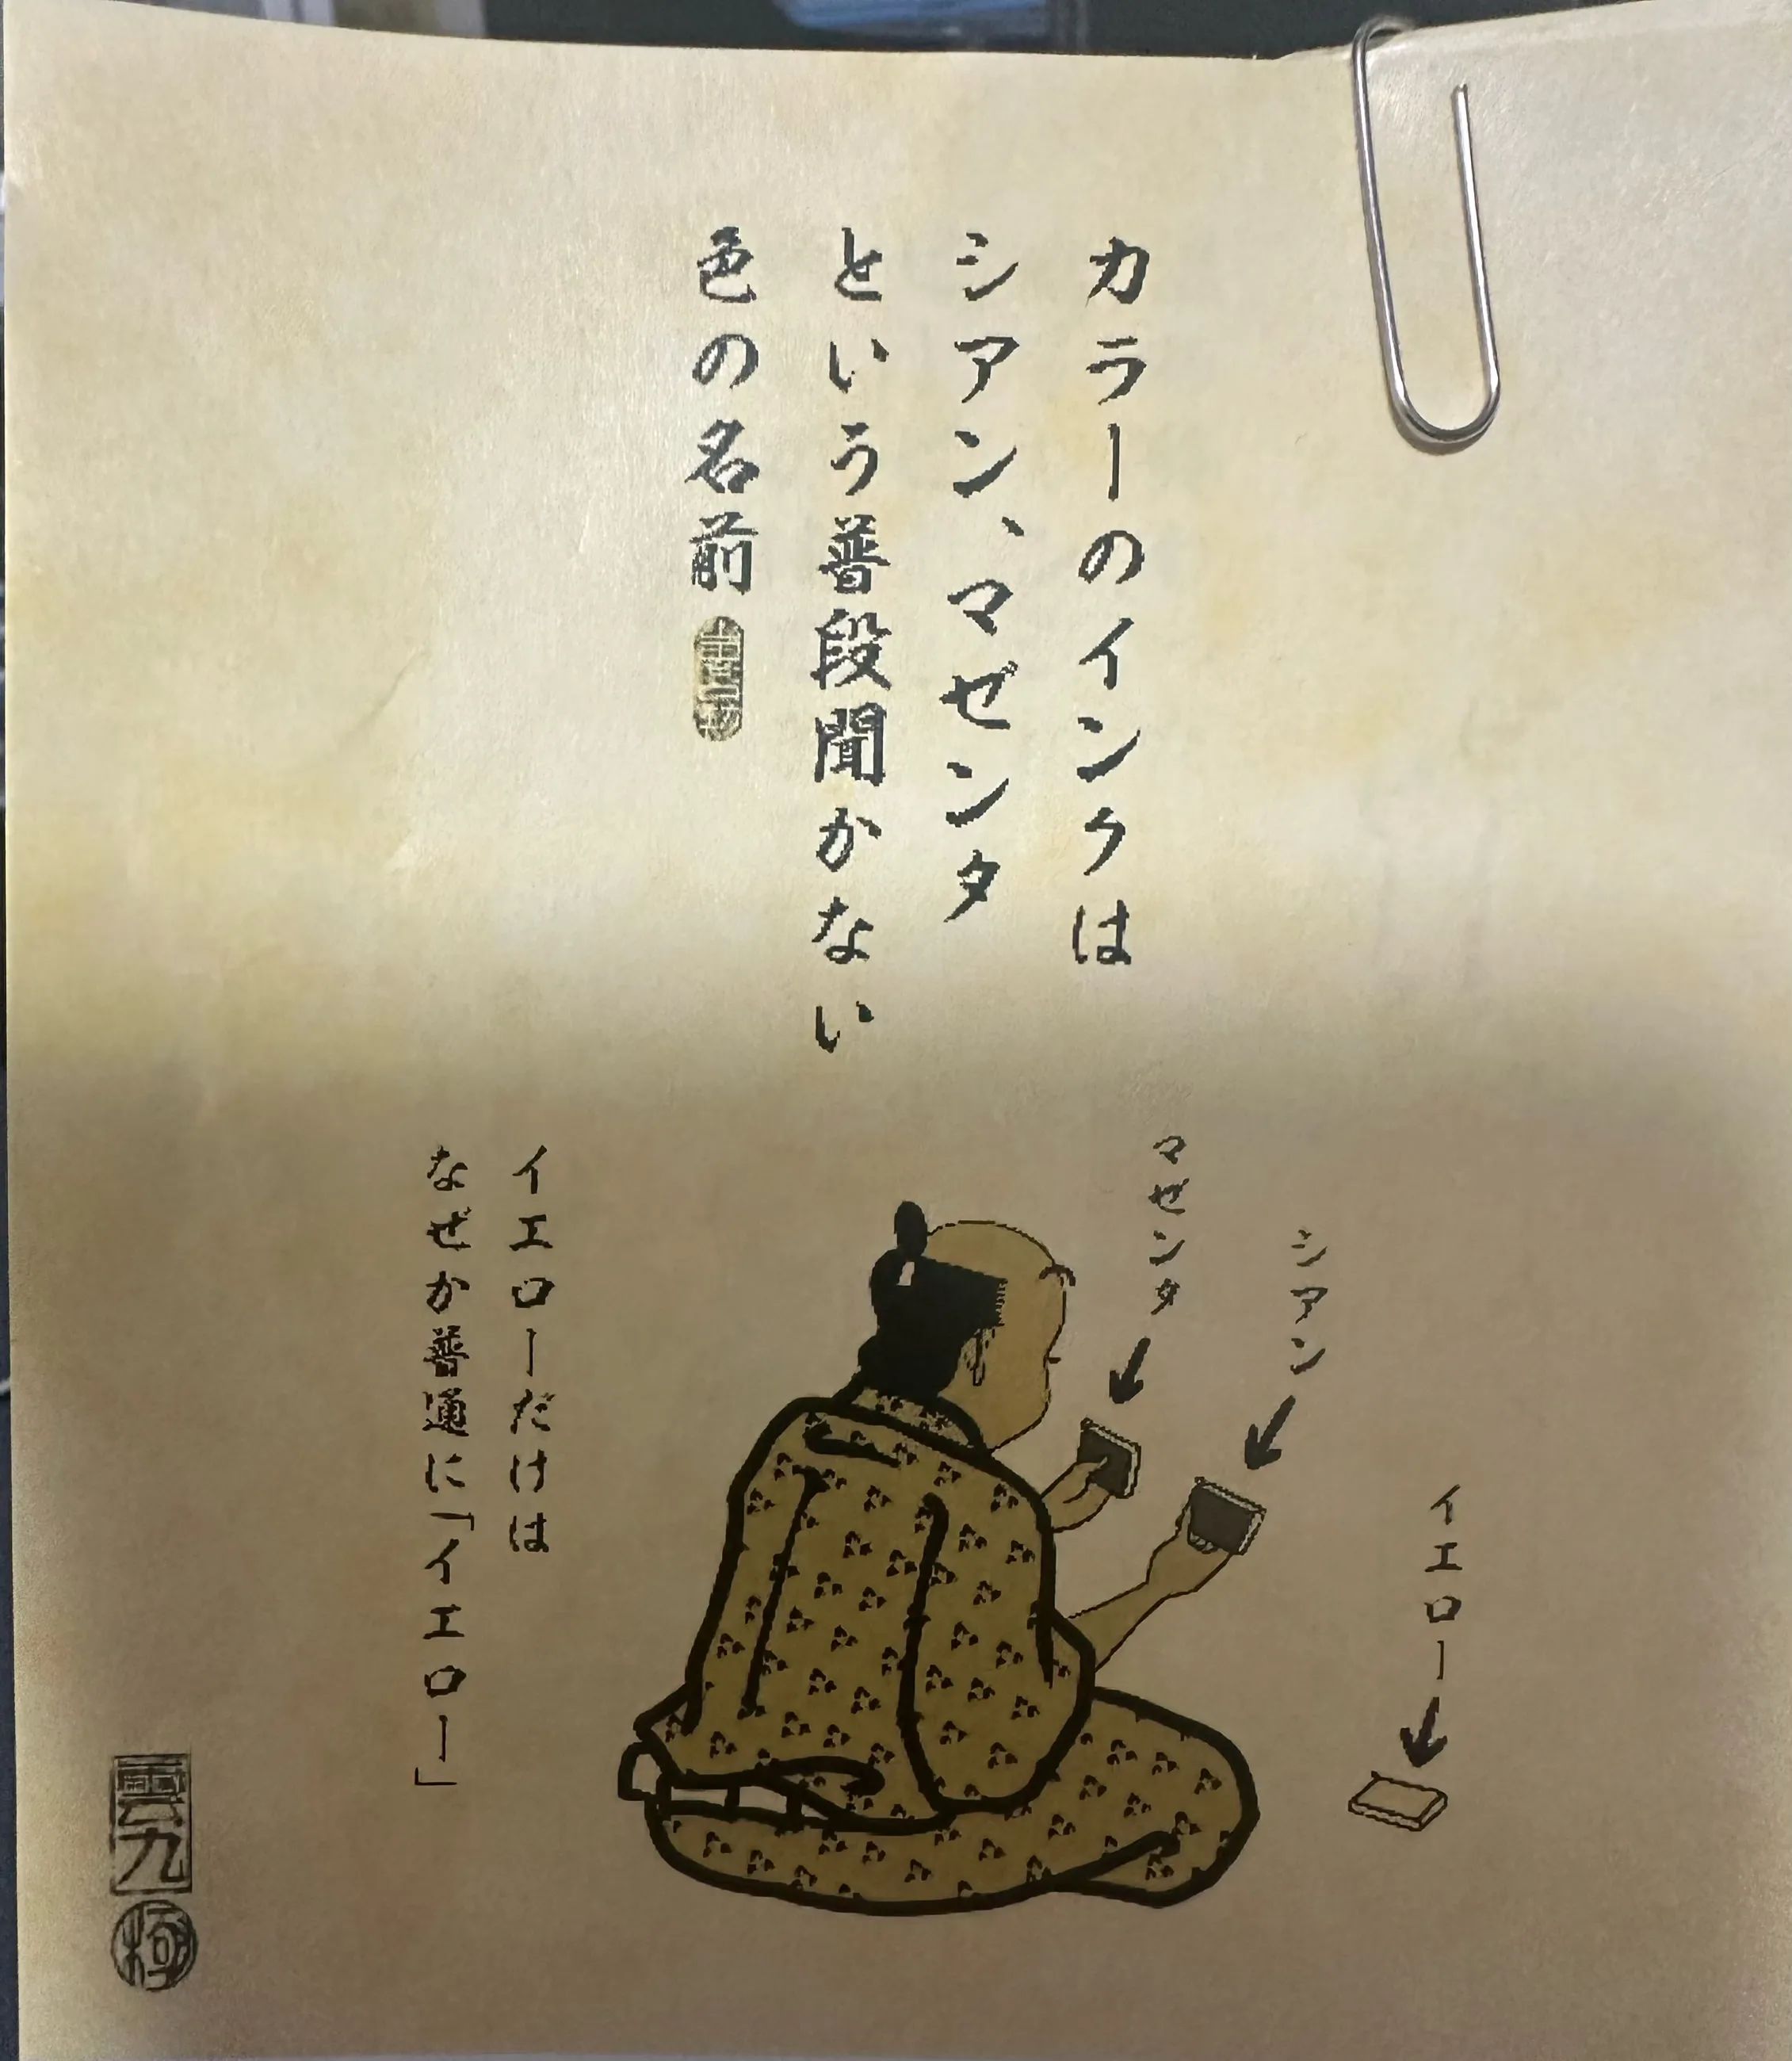 カラーのインクは
シアン、マゼンタ
という普段聞かない
色の名前
マゼンタ
シアン
イエロー
イエローだけは
なぜか普通に「イエロー」
雲九
極